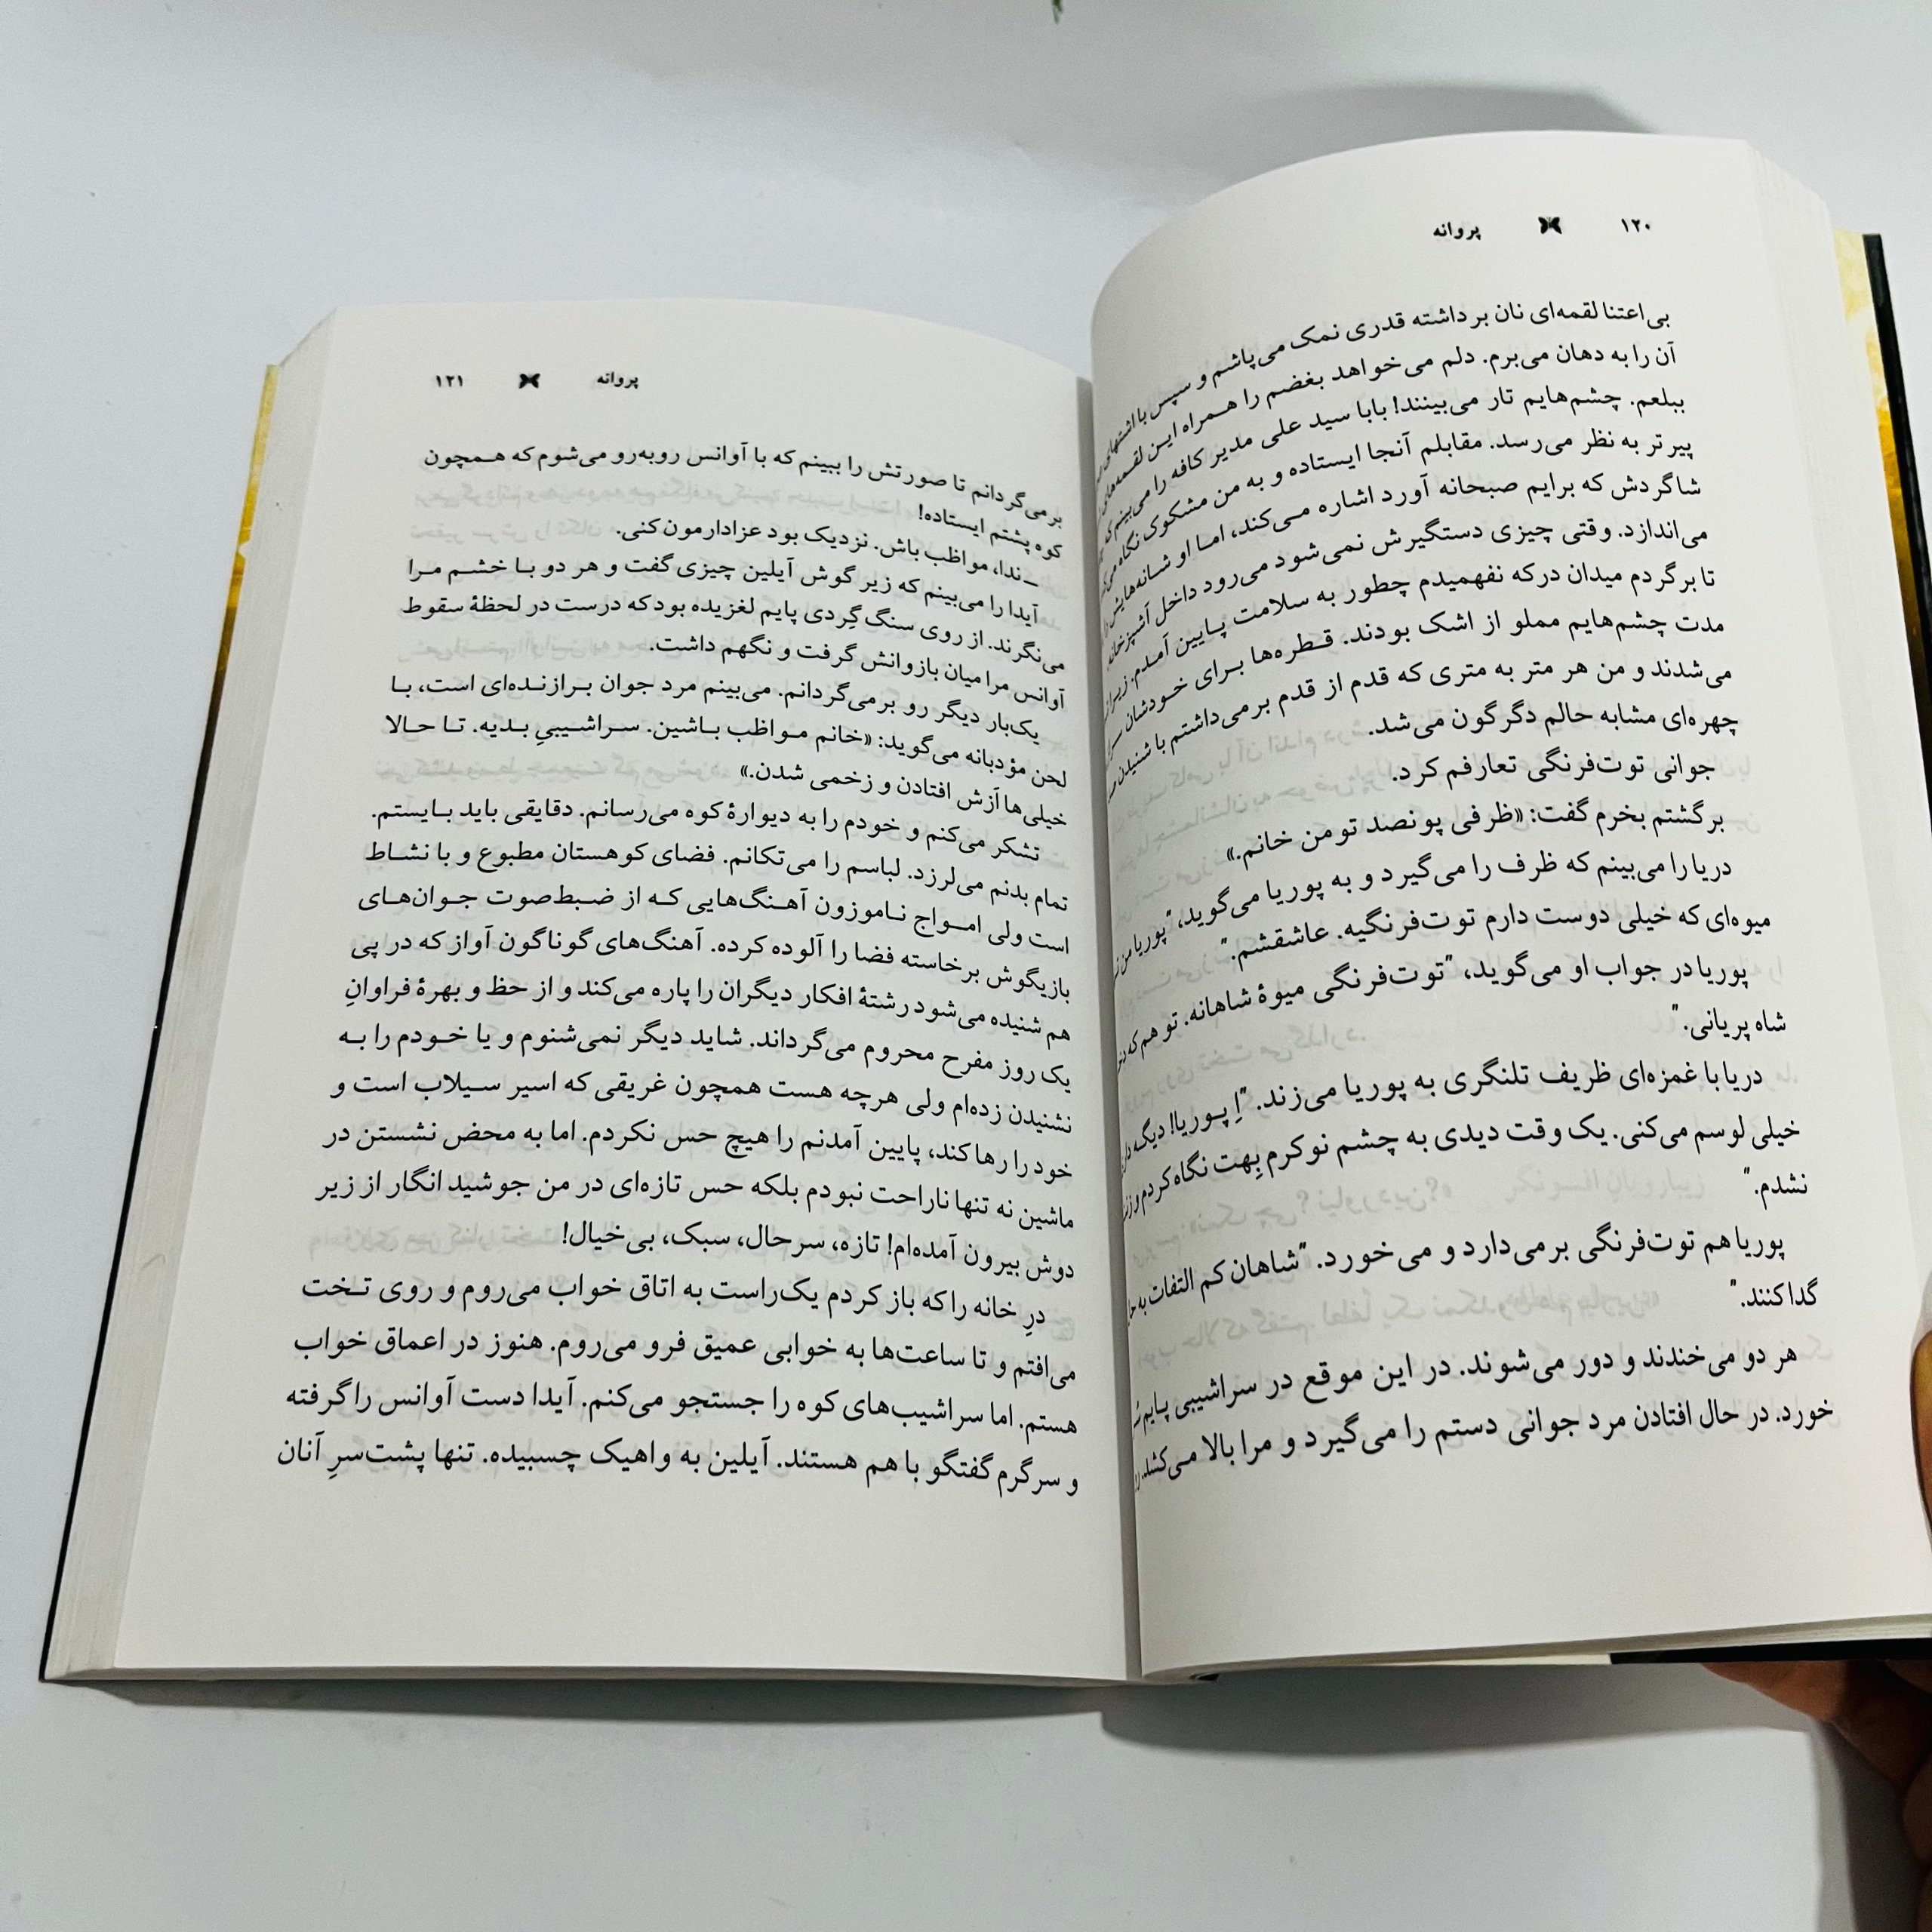 ۱۲۰ پروانه
بی‌اعتنا لقمه‌ای نان برداشته قدری نمک می‌پاشم و سپس با اشتهای
آن را به دهان می‌برم. دلم می‌خواهد بغضم را همراه این لقمه‌های
ببلعم. چشم‌هایم تار می‌بینند! بابا سید علی مدیر کافه را می‌بینم که
پیرتر به نظر می‌رسد. مقابلم آنجا ایستاده و به من مشکوک نگاه
شاگردش که برایم صبحانه آورد اشاره می‌کند، اما او شانه‌هایش
می‌اندازد. وقتی چیزی دستگیرش نمی‌شود می‌رود داخل آشپزخانه.
تا برگردم میدان درکه نفهمیدم چطور به سلامت پایین آمدم. زیرا
مدت چشم‌هایم مملو از اشک بودند. قطره‌ها برای خودشان
می‌شدند و من هر متر به متری که قدم از قدم برمی‌داشتم با شنیدن
چهره‌ای مشابه حالم دگرگون می‌شد.
جوانی توت‌فرنگی تعارفم کرد.
برگشتم بخرم گفت: «ظرفی پونصد تومن خانم.»
دریا را می‌بینم که ظرف را می‌گیرد و به پوریا می‌گوید، "پوریا من
میوه‌ای که خیلی دوست دارم توت‌فرنگیه. عاشقشم."
پوریا در جواب او می‌گوید، "توت‌فرنگی میوۀ شاهانه. تو هم که
شاه پریانی."
دریا با غمزه‌ای ظریف تلنگری به پوریا می‌زند. "اِ پوریا! دیگه
خیلی لوسم می‌کنی. یک وقت دیدی به چشم نوکرم بِهت نگاه کردم و
نشدم."
پوریا هم توت‌فرنگی برمی‌دارد و می‌خورد. "شاهان کم التفات به
گدا کنند."
هر دو می‌خندند و دور می‌شوند. در این موقع در سراشیبی پایم
خورد. در حال افتادن مرد جوانی دستم را می‌گیرد و مرا بالا می‌کشد.
پروانه ۱۲۱
برمی‌گردانم تا صورتش را ببینم که با آوانس روبه‌رو می‌شوم که همچون
کوه پشتم ایستاده!
ـ ندا، مواظب باش. نزدیک بود عزادارمون کنی.
آیدا را می‌بینم که زیر گوش آیلین چیزی گفت و هر دو با خشم مرا
می‌نگرند. از روی سنگ گِردی پایم لغزیده بود که درست در لحظۀ سقوط
آوانس مرا میان بازوانش گرفت و نگهم داشت.
یک‌بار دیگر رو برمی‌گردانم. می‌بینم مرد جوان برازنده‌ای است، با
لحن مؤدبانه می‌گوید: «خانم مواظب باشین. سراشیبیِ بدیه. تا حالا
خیلی‌ها اَزش افتادن و زخمی شدن.»
تشکر می‌کنم و خودم را به دیوارۀ کوه می‌رسانم. دقایقی باید بایستم.
تمام بدنم می‌لرزد. لباسم را می‌تکانم. فضای کوهستان مطبوع و با نشاط
است ولی امواج ناموزون آهنگ‌هایی که از ضبط‌صوت جوان‌های
بازیگوش برخاسته فضا را آلوده کرده. آهنگ‌های گوناگون آواز که در پی
هم شنیده می‌شود رشتۀ افکار دیگران را پاره می‌کند و از حظ و بهرۀ فراوانِ
یک روز مفرح محروم می‌گرداند. شاید دیگر نمی‌شنوم و یا خودم را به
نشنیدن زده‌ام ولی هرچه هست همچون غریقی که اسیر سیلاب است و
خود را رها کند، پایین آمدنم را هیچ حس نکردم. اما به محض نشستن در
ماشین نه تنها ناراحت نبودم بلکه حس تازه‌ای در من جوشید انگار از زیر
دوش بیرون آمده‌ام! تازه، سرحال، سبک، بی‌خیال!
درِ خانه را که باز کردم یک‌راست به اتاق خواب می‌روم و روی تخت
می‌افتم و تا ساعت‌ها به خوابی عمیق فرو می‌روم. هنوز در اعماق خواب
هستم. اما سراشیب‌های کوه را جستجو می‌کنم. آیدا دست آوانس را گرفته
و سرگرم گفتگو با هم هستند. آیلین به واهیک چسبیده. تنها پشت‌سرِ آنان